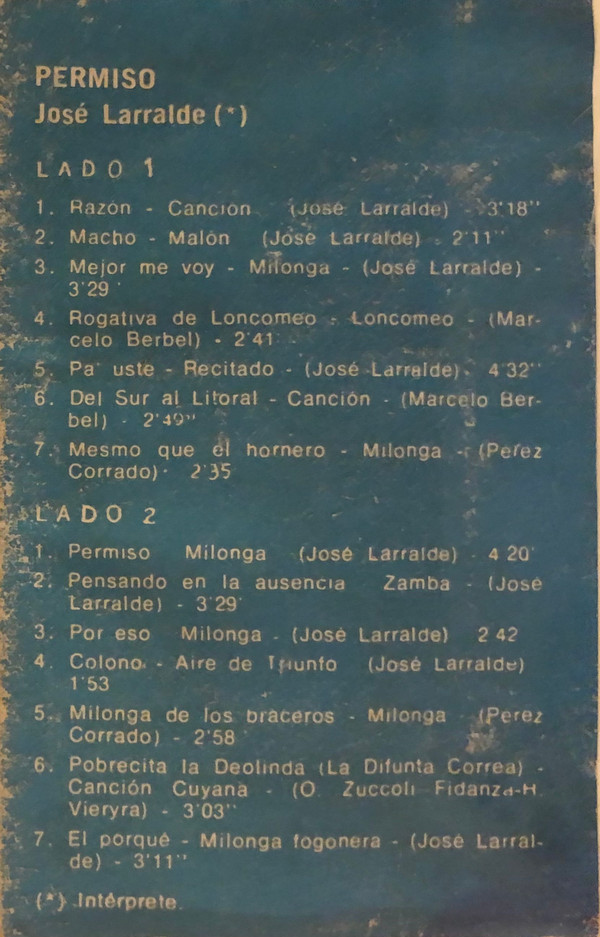 PERMISO
José Larralde (*)
LADO 1
1. Razón - Canción (José Larralde) - 3'18''
2. Macho - Malón (José Larralde) - 2'11''
3. Mejor me voy - Milonga - (José Larralde) -
3'29'
4. Rogativa de Loncomeo - Loncomeo - (Mar-
celo Berbel) - 2'41
5. Pa' uste - Recitado - (José Larralde) - 4'32''
6. Del Sur al Litoral - Canción - (Marcelo Ber-
bel) - 2'49''
7. Mesmo que el hornero - Milonga - (Perez
Corrado) - 2'35
LADO 2
1. Permiso Milonga (José Larralde) - 4 20'
2. Pensando en la ausencia Zamba - (José
Larralde) - 3'29'
3. Por eso Milonga - (José Larralde) 2 42
4. Colono - Aire de Triunfo (José Larralde)
1'53
5. Milonga de los braceros - Milonga - (Perez
Corrado) - 2'58
6. Pobrecita la Deolinda (La Difunta Correa) -
Canción Cuyana - (O. Zuccoli Fidanza-H.
Vieryra) - 3'03''
7. El porqué - Milonga fogonera - (José Larral-
de) - 3'11''
(*) Intérprete.